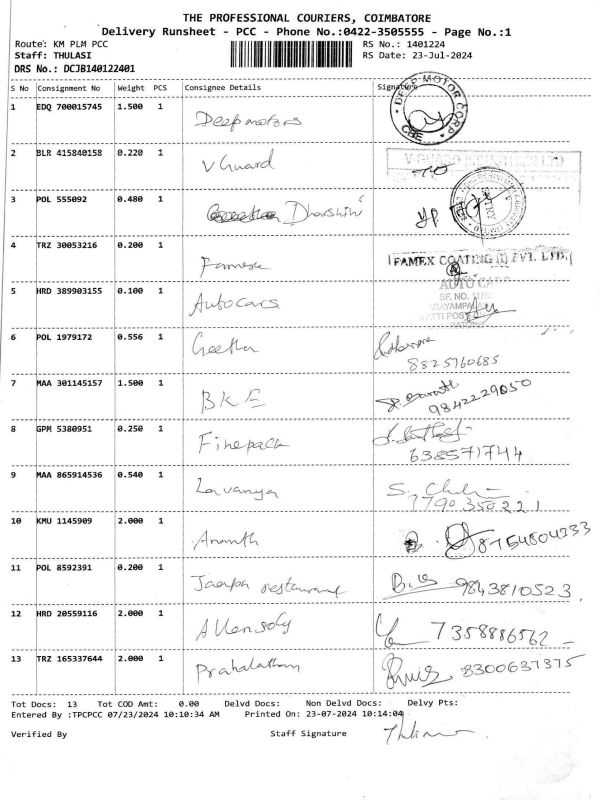 THE PROFESSIONAL COURIERS, COIMBATORE
Delivery Runsheet - PCC - Phone No.:0422-3505555 - Page No.:1
Route: KM PLM PCC RS No.: 1401224
Staff: THULASI RS Date: 23-Jul-2024
DRS No.: DCJB140122401
S No Consignment No Weight PCS Consignee Details Signature
1 EDQ 700015745 1.500 1 Deepmotors DEEP MOTOR CORP. CBE
2 BLR 415840158 0.220 1 V Guard
3 POL 555092 0.480 1 Dharshini
4 TRZ 30053216 0.200 1 FAMEX COATING (I) PVT. LTD.
5 HRD 389903155 0.100 1 Autocars AUTO CARS
SF. NO.
6 POL 1979172 0.556 1 Geetha
8825760685
7 MAA 301145157 1.500 1 BKE
9842229050
8 GPM 5380951 0.250 1 Finepack
638571744
9 MAA 865914536 0.540 1 Lavanya
7790350221
10 KMU 1145909 2.000 1 Ananth 8754804333
11 POL 8592391 0.200 1 restaurant 9843810523
12 HRD 20559116 2.000 1 Allensoly 7358886562
13 TRZ 165337644 2.000 1 Prahalathan 8300637375
Tot Docs: 13 Tot COD Amt: 0.00 Delvd Docs: Non Delvd Docs: Delvy Pts:
Entered By :TPCPCC 07/23/2024 10:10:34 AM Printed On: 23-07-2024 10:14:04
Verified By Staff Signature